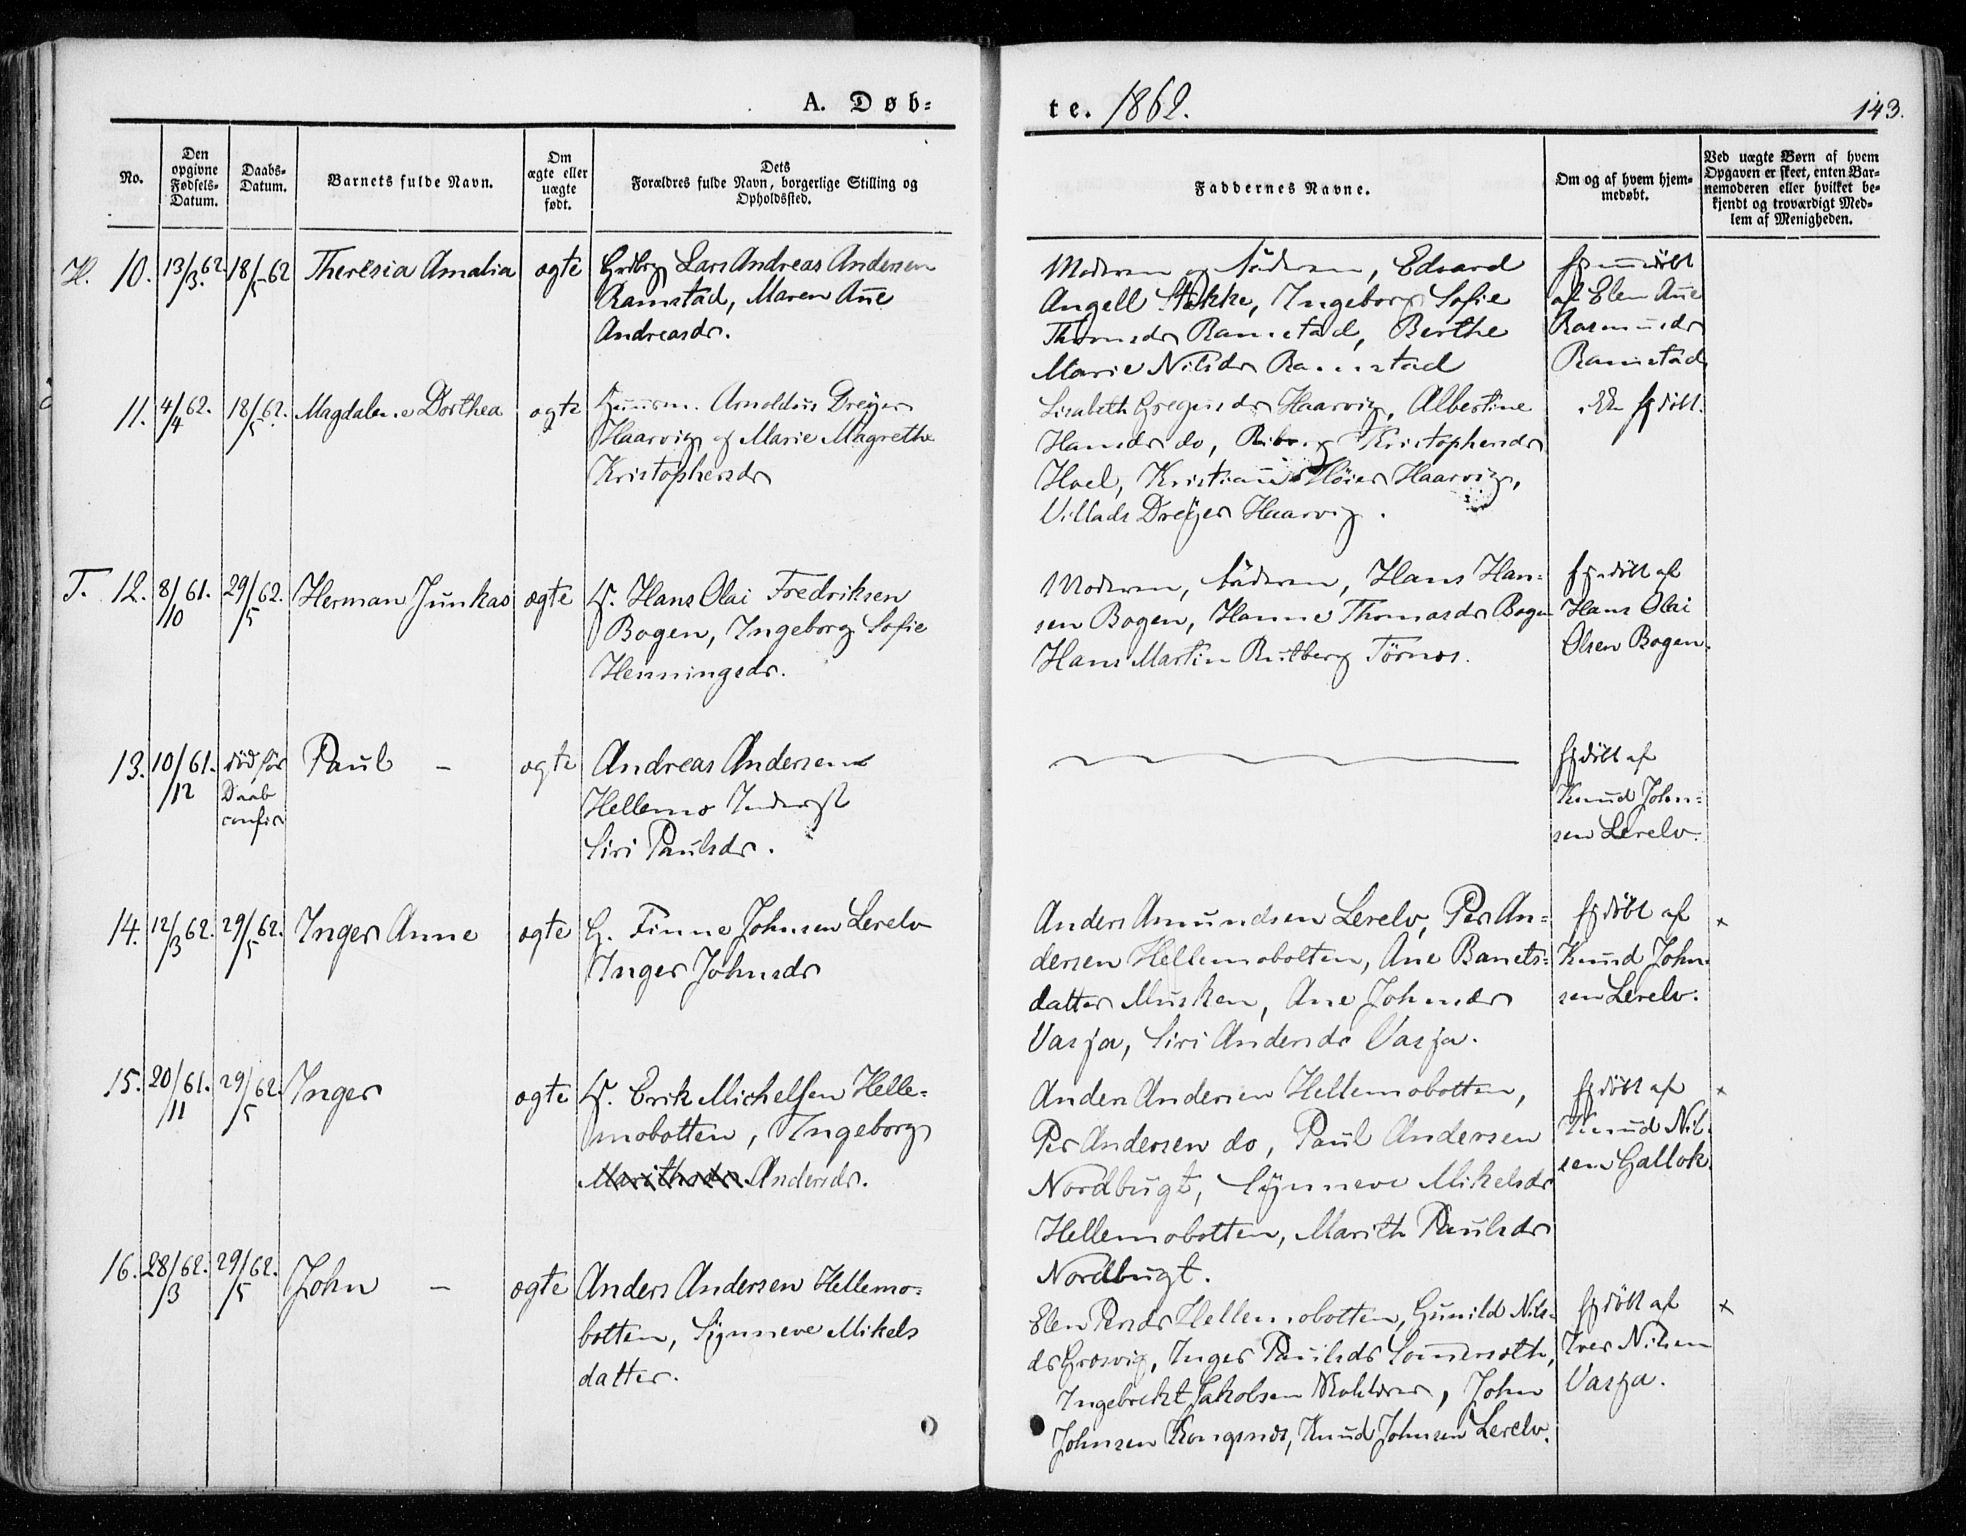 A. Døb-
te. 1862.
143.
No.
Den opgivne Fødsels-Datum.
Daabs-Datum.
Barnets fulde Navn.
Om ægte eller uægte født.
Dets Forældres fulde Navn, borgerlige Stilling og Opholdssted.
Faddernes Navne.
Om og af hvem hjem-medøbt.
Ved uægte Børn af hvem
Opgaven er skeet, enten Bar-
nemoderen eller hvilket be-
kjendt og troværdigt Med-
lem af Menigheden.
H. 10. 13/3 62 18/5 62 Theresia Amalia ægte
Lars Andreas Andersen
Ramstad, Maren Ane
Andreasdr.
Moderen og Faderen, Edvard
Angell Stokke, Ingeborg Sofie
Thomsdr Ramstad, Berthe
Marie Nilsdr Ramstad
hjemmedøbt
af Elen Ane
Rasmusdr
Ramstad
11. 4/4 62. 18/5 62. Magdalene Dorthea ægte
Huusm. Arnoldus Dreyer
Haarvig og Marie Magrethe
Kristophersdr
Lisabeth Haarvig, Albertine
Hansdr do, Kristophersdr
Hoel, Haarvig,
Villads Dreyer Haarvig.
hjdøbt.
T. 12. 8/10 61. 29/5 62. Herman Junkas ægte
Hans Olai Fredriksen
Bogen, Ingeborg Sofie
Henningsdr.
Moderen, Faderen, Hans Han-
sen Bogen, Hanne Thomasdr Bogen
Hans Martin Rutberg Tørnes.
hjdøbt af
Hans Olai
Olsen Bogen.
13. 10/12 61. død før Daab confir Paul - ægte
Andreas Andersen
Hellemo Inderst
Siri Paulsdr.
hjdøbt af
Knud John-
sen Lerelv.
14. 12/3 62. 29/5 62. Inger Anne ægte
G. Finne Johnsen Lerelv
Inger Johnsdr
Anders Amundsen Lerelv, Per An-
dersen Hellemobotten, Ane Banets-
datter Musken, Ane Johnsdr
Vasja, Siri Andersdr Vasja.
hjdøbt af
Knud John-
sen Lerelv.
x
15. 20/11 61. 29/5 62. Inger ægte
Erik Michelsen Helle-
mobotten, Ingeborg
Andersdr.
Anders Andersen Hellemobotten,
Per Andersen do, Paul Andersen
Nordbugt, Synneve Mikelsdr
Hellemobotten, Marith Paulsdr
Nordbugt.
hjdøbt af
Knud Nil-
sen Gallok.
x
16. 28/3 62. 29/5 62. John - ægte
Anders Andersen Hellemo-
botten, Synneve Mikels
datter.
Elen Persdr Hellemobotten, Gunild Nils-
dr Grøsvig, Inger Paulsdr
Ingebrekt Jakobsen, John
Johnsen Kongsnes, Knud Johnsen Lerelv.
hjdøbt af
Iver Nilsen
Vasja.
x